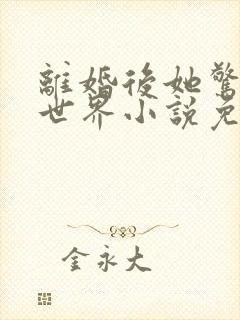 離婚後她驚
世界小說免
金永大